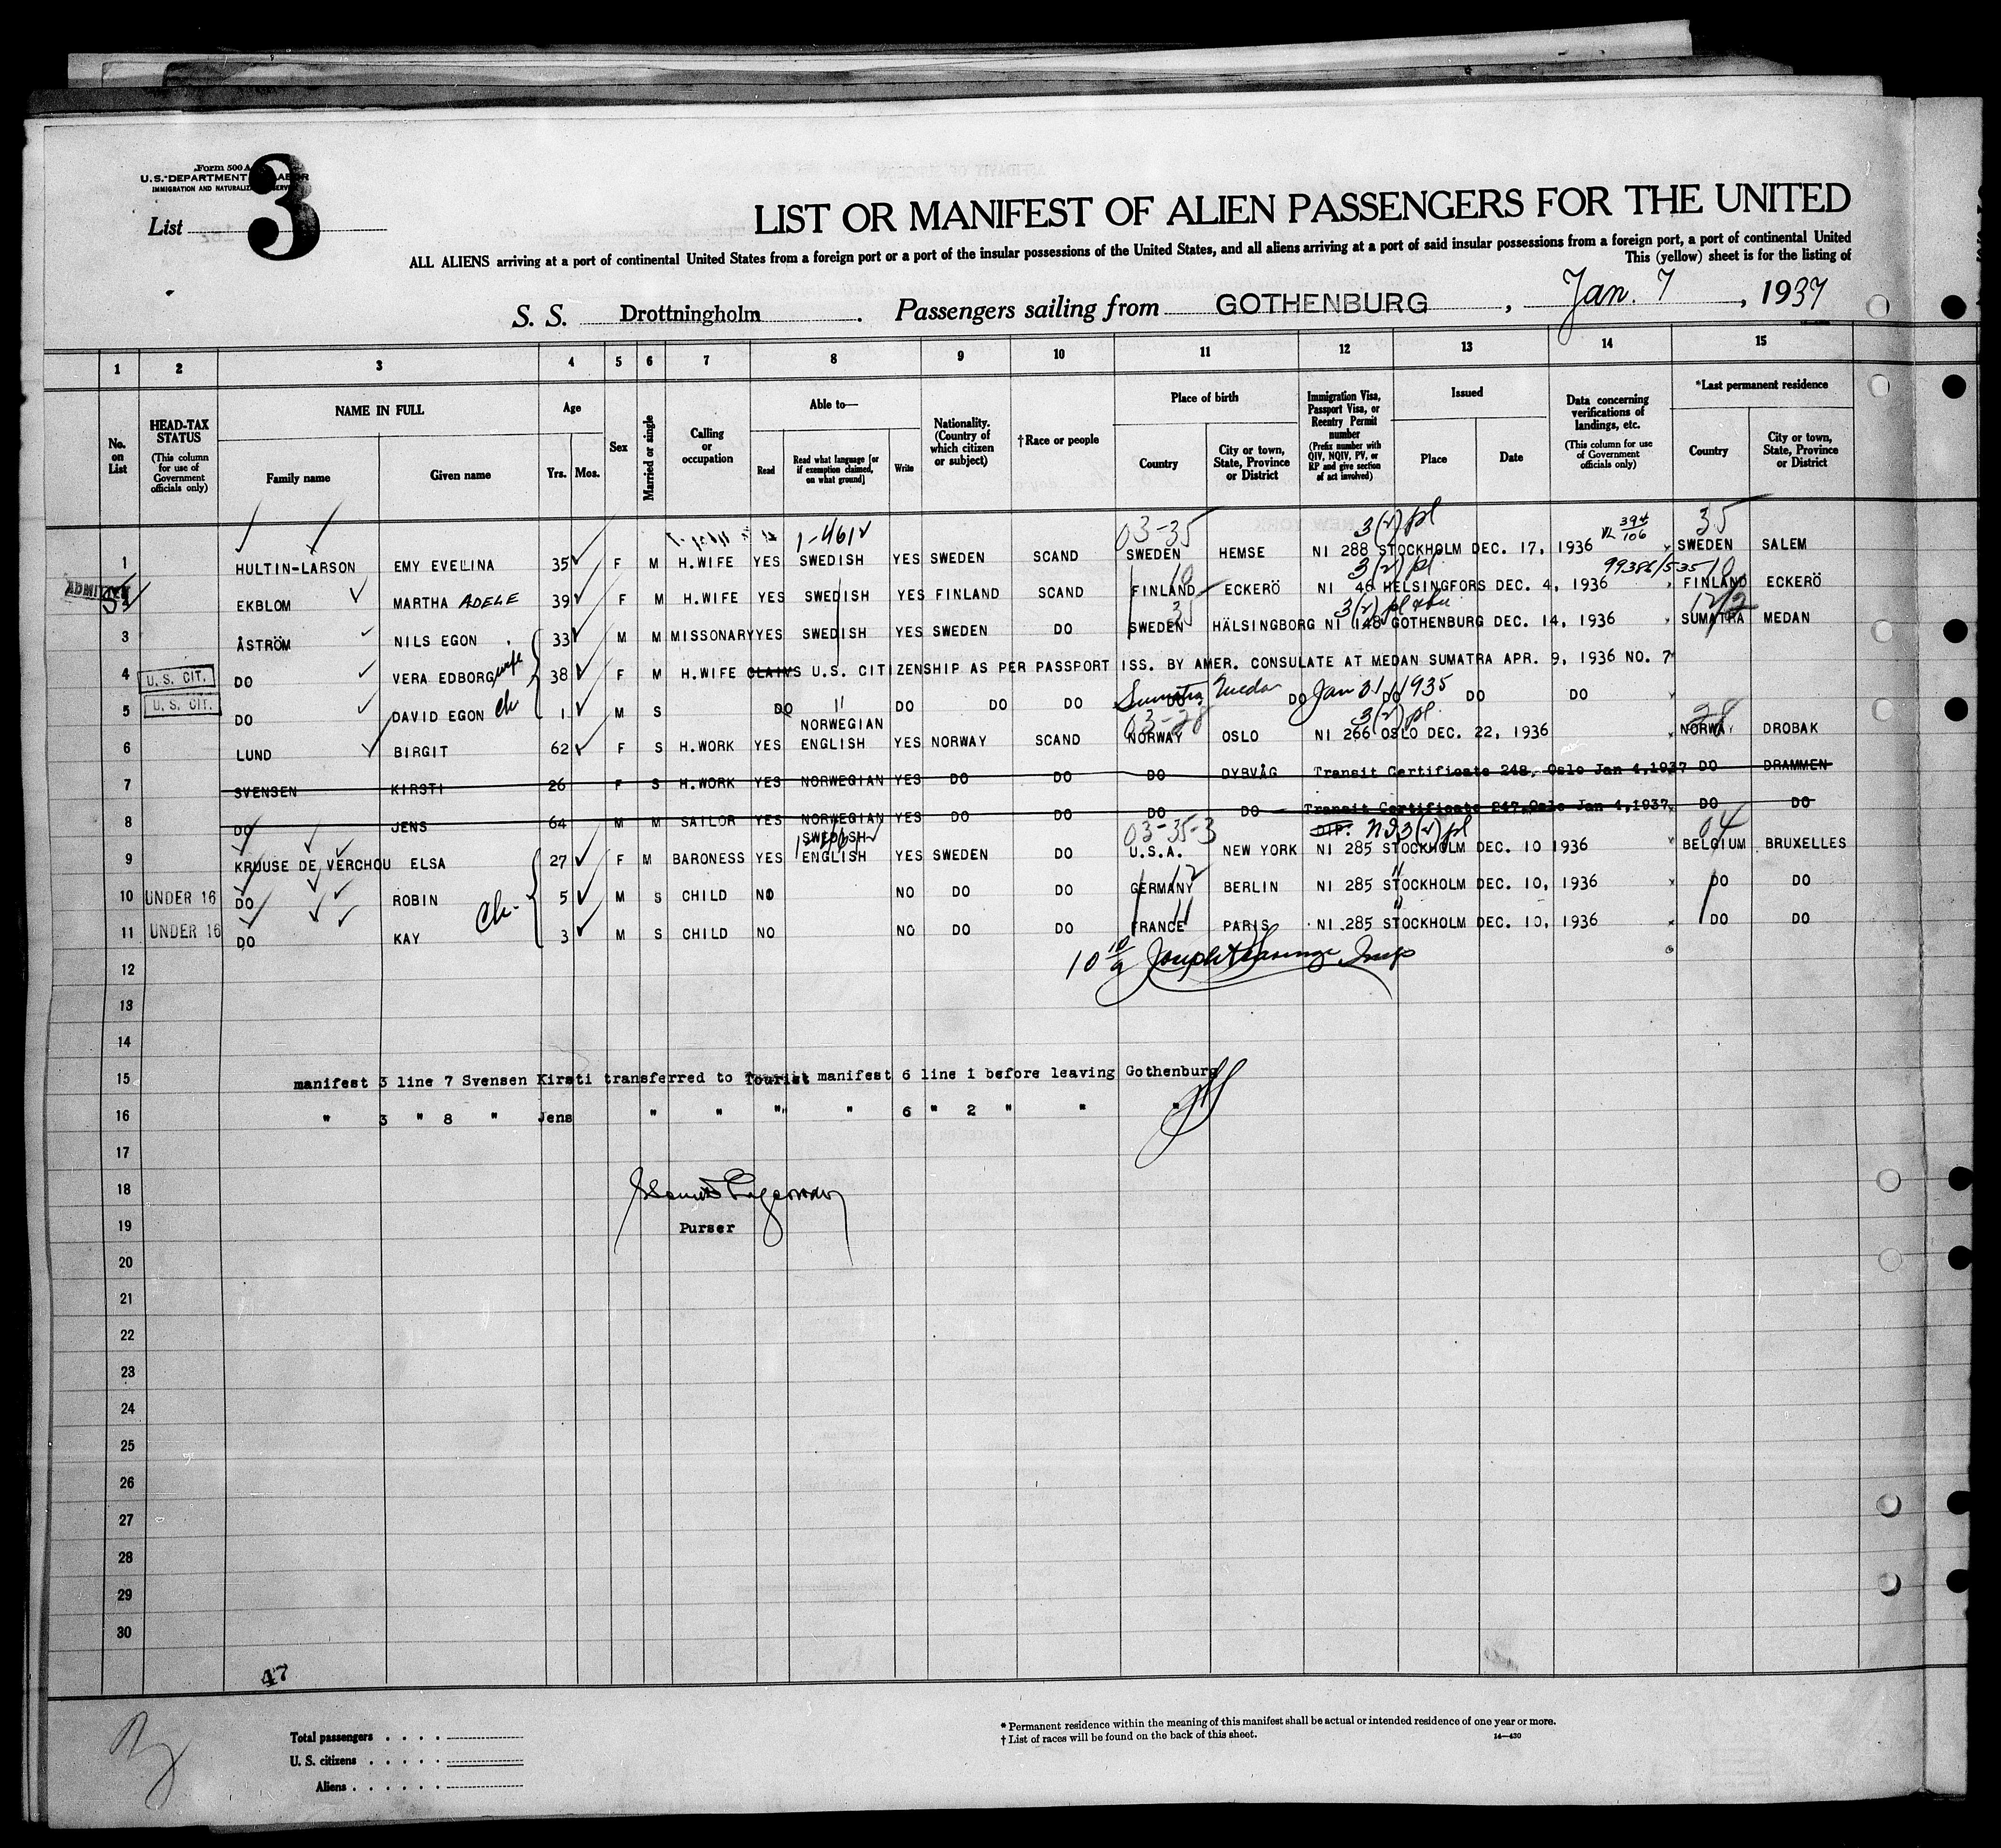 Form 500 A
U. S. DEPARTMENT OF LABOR
IMMIGRATION AND NATURALIZATION SERVICE
List 3
LIST OR MANIFEST OF ALIEN PASSENGERS FOR THE UNITED
ALL ALIENS arriving at a port of continental United States from a foreign port or a port of the insular possessions of the United States, and all aliens arriving at a port of said insular possessions from a foreign port, a port of continental United
This (yellow) sheet is for the listing of
S. S. Drottningholm . Passengers sailing from GOTHENBURG , Jan. 7 , 1937
1 2 3 4 5 6 7 8 9 10 11 12 13 14 15
No. on List
HEAD-TAX STATUS (This column for use of Government officials only)
NAME IN FULL Family name Given name
Age Yrs. Mos.
Sex
Married or single
Calling or occupation
Able to— Read Read what language [or if exemption claimed, on what ground] Write
Nationality. (Country of which citizen or subject)
†Race or people
Place of birth Country City or town, State, Province or District
Immigration Visa, Passport Visa, or Reentry Permit number (Prefix number with QIV, NQIV, PV, or RP and give section of act involved)
Issued Place Date
Data concerning verifications of landings, etc. (This column for use of Government officials only)
*Last permanent residence Country City or town, State, Province or District
1-461 03-35 3(2) pl 394/106 35
1 HULTIN-LARSON EMY EVELINA 35 F M H.WIFE YES SWEDISH YES SWEDEN SCAND SWEDEN HEMSE NI 288 STOCKHOLM DEC. 17, 1936 SWEDEN SALEM
ADMITTED 10 3(2) pl 10
2 EKBLOM MARTHA ADELE 39 F M H.WIFE YES SWEDISH YES FINLAND SCAND FINLAND ECKERÖ NI 46 HELSINGFORS DEC. 4, 1936 FINLAND ECKERÖ
35 3(2) pl
3 ÅSTRÖM NILS EGON 33 M M MISSONARY YES SWEDISH YES SWEDEN DO SWEDEN HÄLSINGBORG NI 148 GOTHENBURG DEC. 14, 1936 SUMATRA MEDAN
4 U. S. CIT. DO VERA EDBORG wife 38 F M H.WIFE CLAIMS U.S. CITIZENSHIP AS PER PASSPORT ISS. BY AMER. CONSULATE AT MEDAN SUMATRA APR. 9, 1936 NO. 7
5 U. S. CIT. DO DAVID EGON ch 1 M S DO " DO DO DO DO Sumatra Medan DO Jan 31, 1935 DO DO DO
NORWEGIAN 03-28 3(2) pl 28
6 LUND BIRGIT 62 F S H.WORK YES ENGLISH YES NORWAY SCAND NORWAY OSLO NI 266 OSLO DEC. 22, 1936 NORWAY DROBAK
7 SVENSEN KIRSTI 26 F S H.WORK YES NORWEGIAN YES DO DO DO DYBVÅG Transit Certificate 248, Oslo Jan 4,1937 DO DRAMMEN
8 DO JENS 64 M M SAILOR YES NORWEGIAN YES DO DO DO DO Transit Certificate 247,Oslo Jan 4,1937 DO DO
SWEDISH 03-35-3 DIP. 3(2) pl 04
9 KRUUSE DE VERCHOU ELSA 27 F M BARONESS YES ENGLISH YES SWEDEN DO U.S.A. NEW YORK NI 285 STOCKHOLM DEC. 10 1936 BELGIUM BRUXELLES
10 UNDER 16 DO ROBIN 5 M S CHILD NO NO DO DO GERMANY BERLIN NI 285 STOCKHOLM DEC. 10, 1936 DO DO
11 UNDER 16 DO KAY ch. 3 M S CHILD NO NO DO DO FRANCE PARIS NI 285 STOCKHOLM DEC. 10, 1936 DO DO
12
13
14
15 manifest 3 line 7 Svensen Kirsti transferred to Tourist manifest 6 line 1 before leaving Gothenburg
16 " 3 " 8 " Jens " " " " 6 " 2 " " "
17
18
19 Purser
20
21
22
23
24
25
26
27
28
29
30
47
Total passengers . . . .
U. S. citizens . . . . .
Aliens . . . . . .
* Permanent residence within the meaning of this manifest shall be actual or intended residence of one year or more.
† List of races will be found on the back of this sheet.
14—430